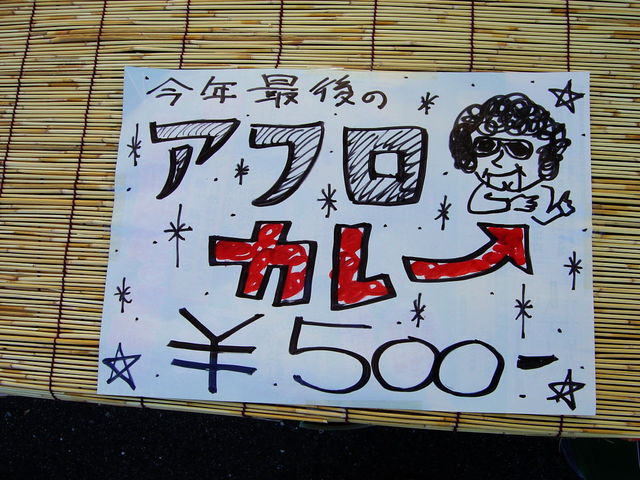 今年最後の
アフロ
カレー
¥500-